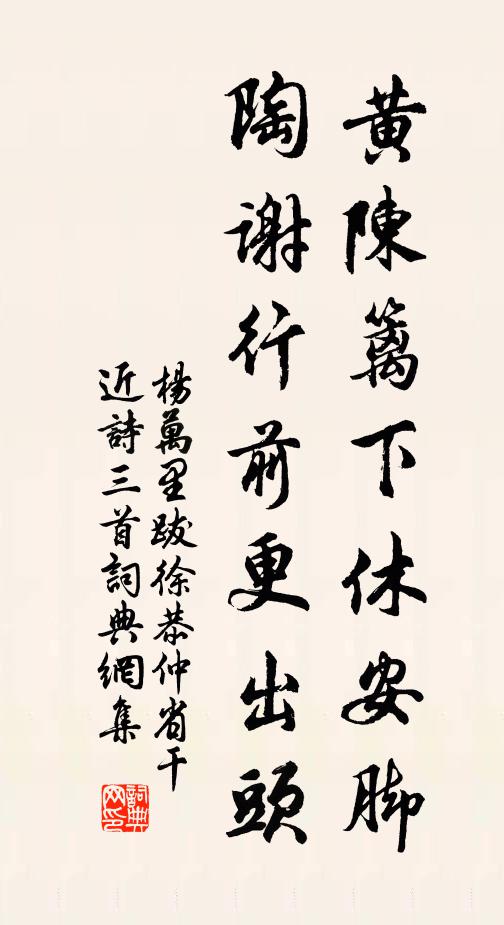 黄陳籬下休安脚
陶谢行前更出頭
楊萬里跋徐恭仲省干
近詩三首詞典網集
詞典网印